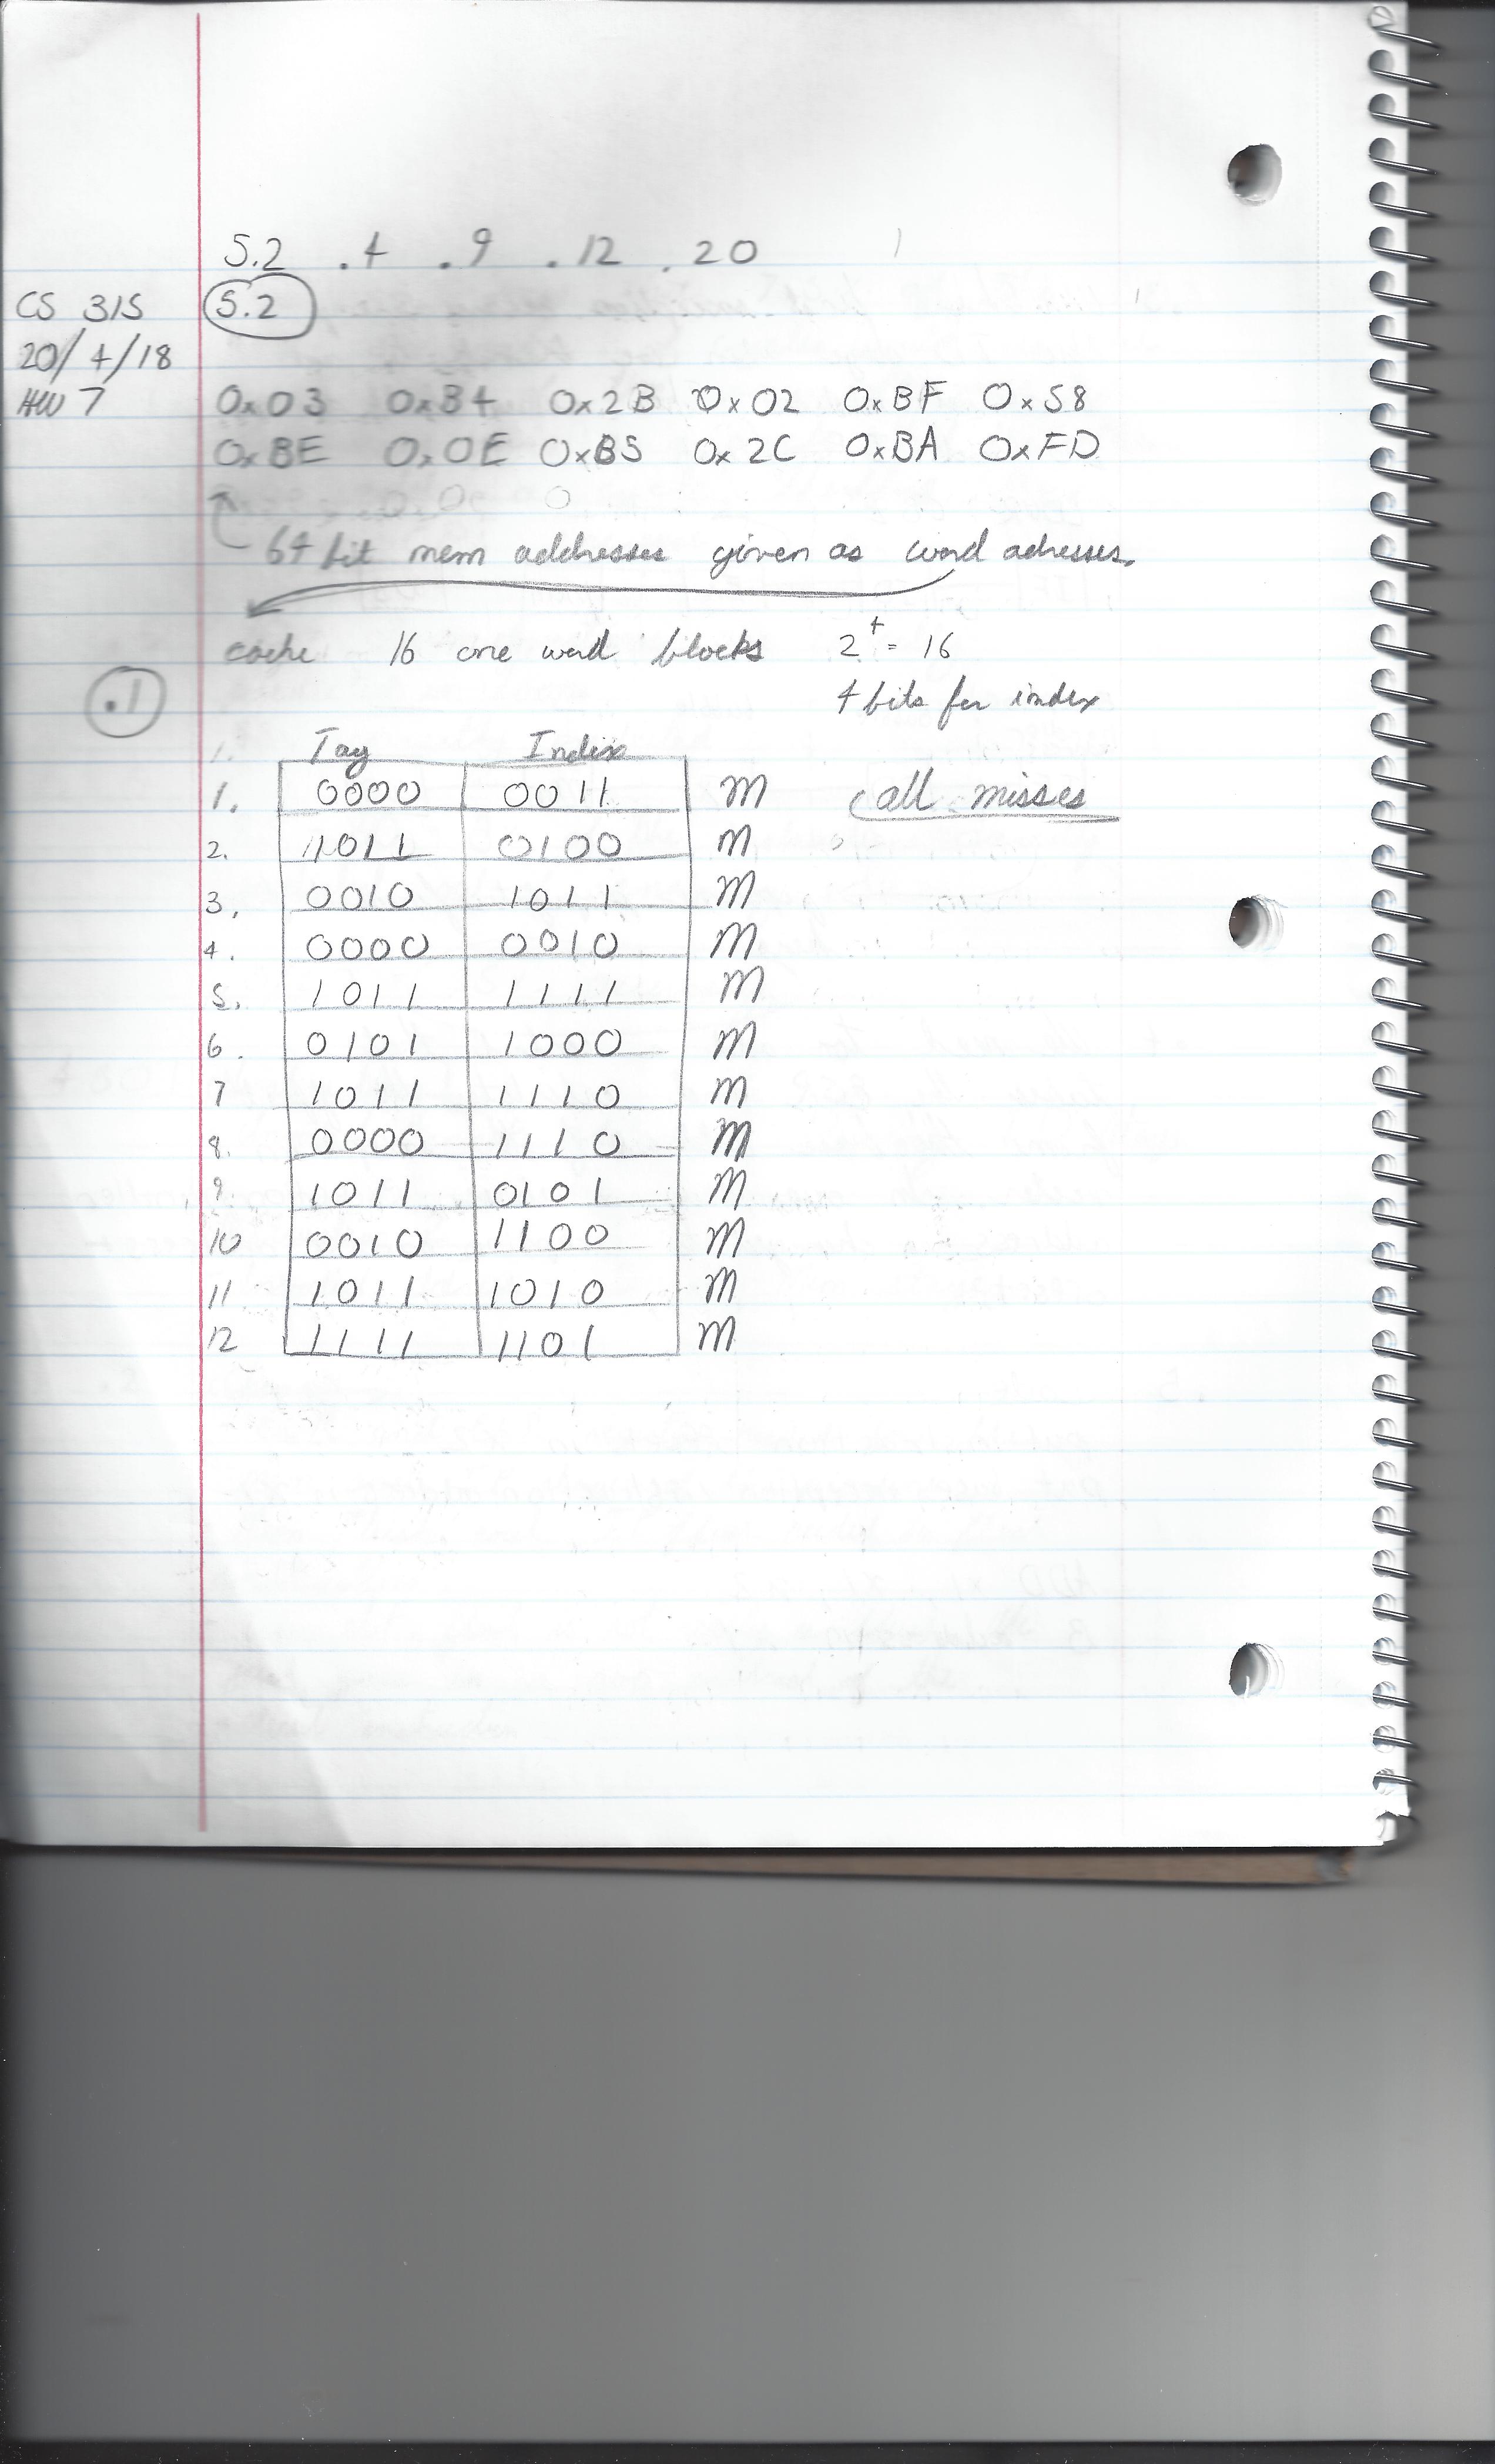 5.2 .4 .9 .12 .20
CS 315
20/4/18
HW 7
5.2
0x03 0xB4 0x2B 0x02 0xBF 0x58
0xBE 0x0E 0xB5 0x2C 0xBA 0xFD
64 bit mem addresses given as word adresses.
cache 16 one word blocks 2^4 = 16
4 bits for index
.1
Tag Index
1. 0000 0011 M all misses
2. 1011 0100 M
3. 0010 1011 M
4. 0000 0010 M
5. 1011 1111 M
6. 0101 1000 M
7 1011 1110 M
8. 0000 1110 M
9 1011 0101 M
10 0010 1100 M
11 1011 1010 M
12 1111 1101 M